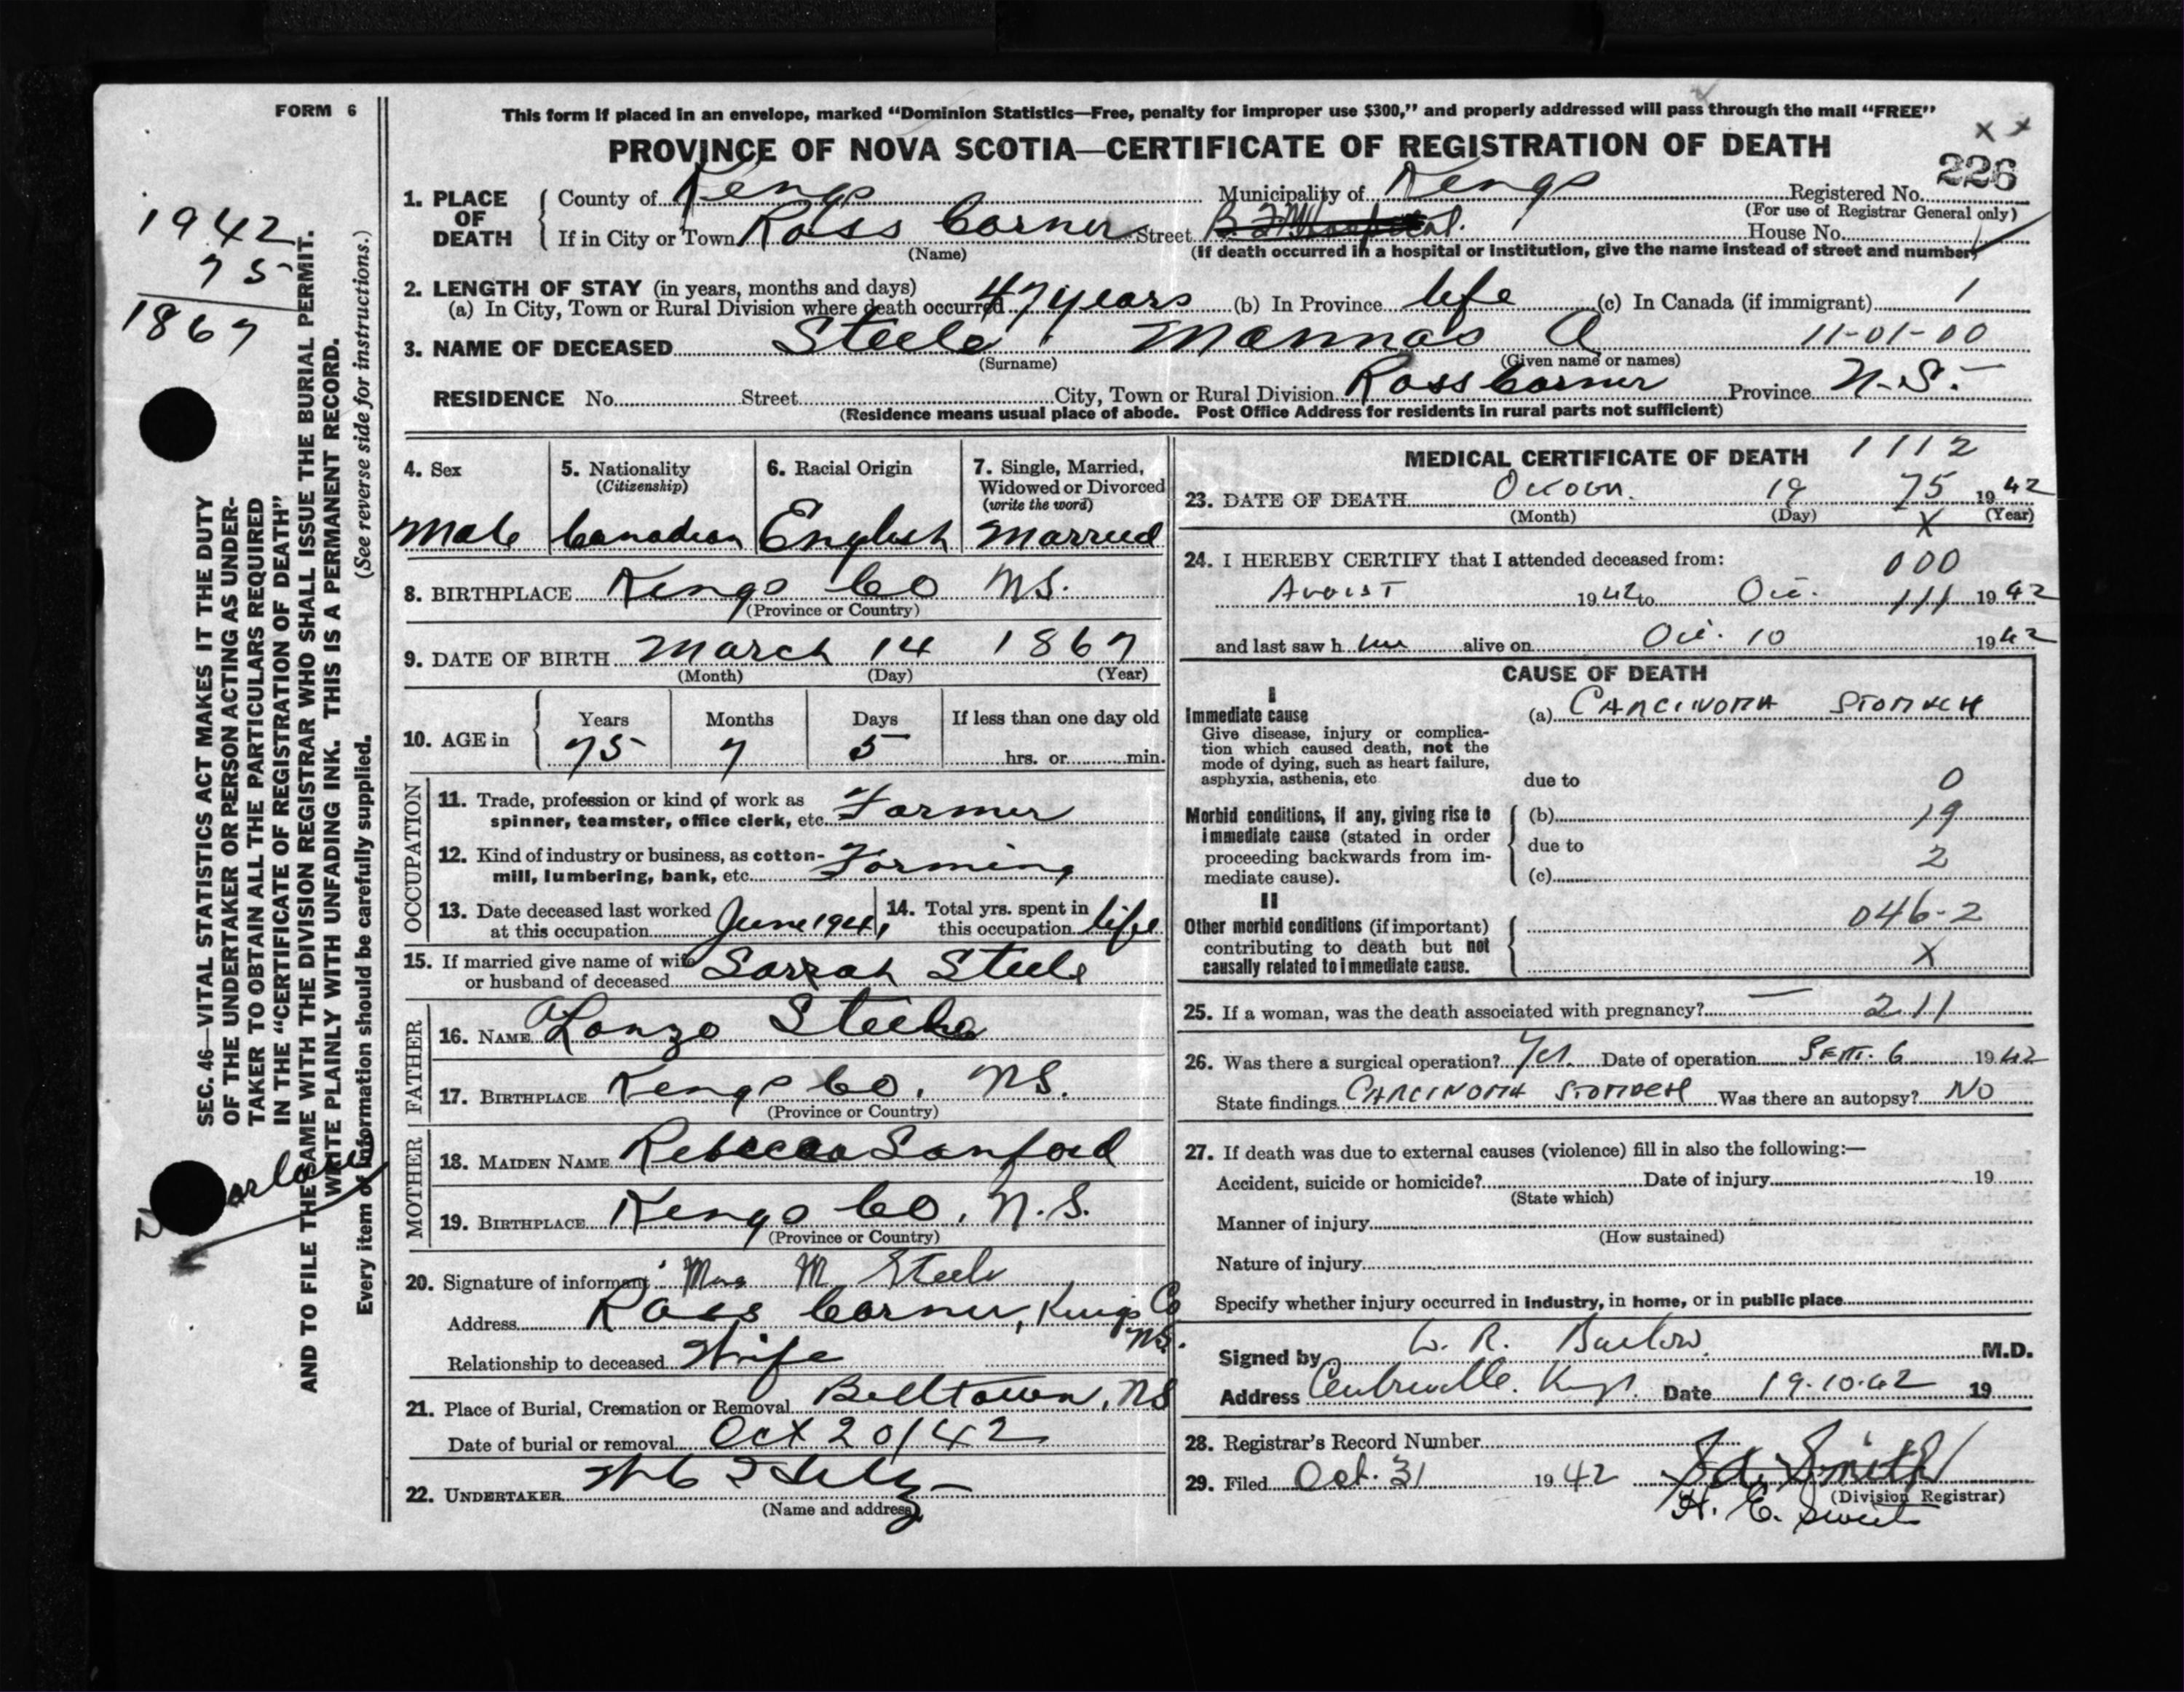 FORM 6
This form if placed in an envelope, marked “Dominion Statistics—Free, penalty for improper use $300,” and properly addressed will pass through the mail “FREE”
PROVINCE OF NOVA SCOTIA—CERTIFICATE OF REGISTRATION OF DEATH
x x
226
1942
75
1867
SEC. 46—VITAL STATISTICS ACT MAKES IT THE DUTY
OF THE UNDERTAKER OR PERSON ACTING AS UNDER-
TAKER TO OBTAIN ALL THE PARTICULARS REQUIRED
IN THE “CERTIFICATE OF REGISTRATION OF DEATH”
AND TO FILE THE SAME WITH THE DIVISION REGISTRAR WHO SHALL ISSUE THE BURIAL PERMIT.
WRITE PLAINLY WITH UNFADING INK. THIS IS A PERMANENT RECORD.
Every item of information should be carefully supplied. (See reverse side for instructions.)
1. PLACE OF DEATH
County of Kings Municipality of Kings Registered No.
(For use of Registrar General only)
If in City or Town Ross Corner Street B.F.M. Hospital. House No.
(Name) (If death occurred in a hospital or institution, give the name instead of street and number)
2. LENGTH OF STAY (in years, months and days)
(a) In City, Town or Rural Division where death occurred 47 years (b) In Province life (c) In Canada (if immigrant) 1
3. NAME OF DECEASED Steele Mannas A 11-01-00
(Surname) (Given name or names)
RESIDENCE No. Street City, Town or Rural Division Ross Corner Province N.S.
(Residence means usual place of abode. Post Office Address for residents in rural parts not sufficient)
4. Sex
Male
5. Nationality
(Citizenship)
Canadian
6. Racial Origin
English
7. Single, Married,
Widowed or Divorced
(write the word)
Married
8. BIRTHPLACE Kings Co NS.
(Province or Country)
9. DATE OF BIRTH March 14 1867
(Month) (Day) (Year)
10. AGE in
Years Months Days If less than one day old
75 7 5 hrs. or min.
OCCUPATION
11. Trade, profession or kind of work as
spinner, teamster, office clerk, etc. Farmer
12. Kind of industry or business, as cotton-
mill, lumbering, bank, etc. Farming
13. Date deceased last worked
at this occupation June 1941
14. Total yrs. spent in
this occupation life
15. If married give name of wife
or husband of deceased Sarrah Steele
FATHER
16. NAME ALonzo Steele
17. BIRTHPLACE Kings Co. NS.
(Province or Country)
MOTHER
18. MAIDEN NAME Rebecca Sanford
19. BIRTHPLACE Kings Co. N.S.
(Province or Country)
20. Signature of informant Mrs M. Steele
Address Ross Corner, Kings Co
NS.
Relationship to deceased Wife
21. Place of Burial, Cremation or Removal Billtown, NS
Date of burial or removal Oct 20/42
22. UNDERTAKER
(Name and address)
MEDICAL CERTIFICATE OF DEATH 1112
23. DATE OF DEATH 19 75 1942
(Month) (Day) X (Year)
24. I HEREBY CERTIFY that I attended deceased from: 000
August 1942 to Oct. 111 1942
and last saw him alive on Oct. 10 1942
CAUSE OF DEATH
I
Immediate cause
Give disease, injury or complica-
tion which caused death, not the
mode of dying, such as heart failure,
asphyxia, asthenia, etc
(a) CARCINOMA STOMACH
due to 0
Morbid conditions, if any, giving rise to
immediate cause (stated in order
proceeding backwards from im-
mediate cause).
(b) 19
due to 2
(c)
II
Other morbid conditions (if important)
contributing to death but not
causally related to immediate cause.
046-2
X
25. If a woman, was the death associated with pregnancy? — 211
26. Was there a surgical operation? Yes. Date of operation SEPT. 6 1942
State findings CARCINOMA STOMACH Was there an autopsy? NO
27. If death was due to external causes (violence) fill in also the following:—
Accident, suicide or homicide? Date of injury 19
(State which)
Manner of injury
(How sustained)
Nature of injury
Specify whether injury occurred in industry, in home, or in public place
Signed by W. R. Barlow. M.D.
Address Centreville. Kings. Date 19.10.42 19
28. Registrar's Record Number
29. Filed Oct. 31 1942 Smith
(Division Registrar)
H. E.